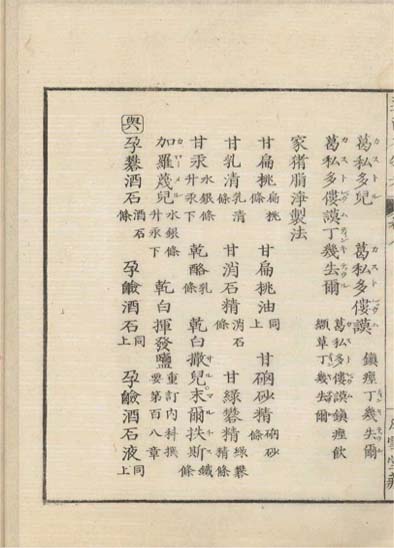 葛私多兒　葛私多僂謨　鎮痙丁幾失爾
葛私多僂謨丁幾失爾　葛私多僂謨鎮痙飲　纈草丁幾失爾
家猪脂淨製法
甘扁桃扁桃條　甘扁桃油同上　甘硇砂精硇砂條
甘乳清乳清條　甘消石精消石條　甘綠礬精綠礬精條
甘汞水銀條升汞下　乾酪乳條　乾白撒兒末爾扶斯鐵條
加羅蔑兒水銀條升汞下　乾白揮發鹽重訂内科撰要第百八章
與　孕礬酒石酒石條　孕鹼酒石同上　孕鹼酒石液同上